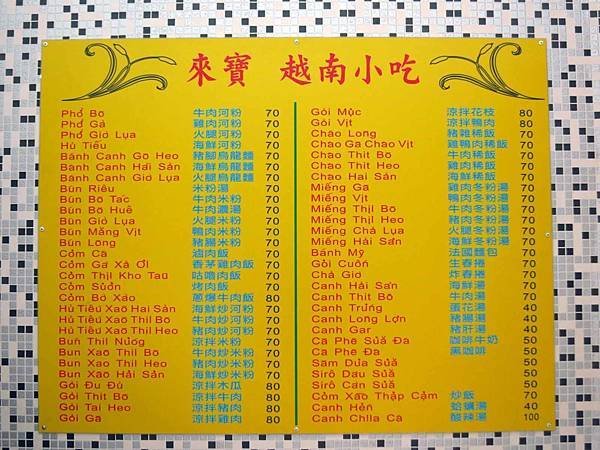 來寶 越南小吃
Phổ Bò 牛肉河粉 70
Phổ Gà 雞肉河粉 70
Phổ Giò Lụa 火腿河粉 70
Hủ Tiếu 海鮮河粉 70
Bánh Canh Gò Heo 豬腳烏龍麵 70
Bánh Canh Hải Sản 海鮮烏龍麵 70
Bánh Canh Giò Lụa 火腿烏龍麵 70
Bún Riêu 米粉湯 70
Bún Bò Tac 牛肉米粉 70
Bún Bò Huế 牛肉濃湯 70
Bún Giò Lụa 火腿米粉 70
Bún Măng Vịt 鴨肉米粉 70
Bún Lòng 豬腸米粉 70
Cồm Cà 滷肉飯 70
Cồm Ga Xả Ơi 香茅雞肉飯 70
Cồm Thịt Kho Taũ 咕嚕肉飯 70
Cồm Sườn 烤肉飯 70
Cồm Bó Xáo 蔥爆牛肉飯 80
Hủ Tiếu Xaõ Hai Sản 海鮮炒河粉 70
Hủ Tiếu Xaõ Thit Bò 牛肉炒河粉 70
Hủ Tiếu Xaõ Thit Heo 豬肉炒河粉 70
Buñ Thit Nướg 涼拌米粉 70
Bun Xaõ Thit Bò 牛肉炒米粉 70
Bun Xaõ Thit Heo 豬肉炒米粉 70
Bun Xaõ Hải Sản 海鮮炒米粉 70
Gỏi Đu Đủ 涼拌木瓜 80
Gỏi Thit Bò 涼拌牛肉 80
Gỏi Tai Heo 涼拌豬肉 80
Gỏi Gà 涼拌雞肉 80
Gỏi Mộc 涼拌花枝 80
Gỏi Vịt 涼拌鴨肉 80
Chao Long 豬雜稀飯 70
Chao Ga Chao Vịt 雞鴨肉稀飯 70
Chao Thit Bò 牛肉稀飯 70
Chao Thit Heo 豬肉稀飯 70
Chao Hai Sản 海鮮稀飯 70
Miếng Ga 雞肉冬粉湯 70
Miếng Vịt 鴨肉冬粉湯 70
Miếng Thịt Bò 牛肉冬粉湯 70
Miếng Thịt Heo 豬肉冬粉湯 70
Miếng Chả Lụa 火腿冬粉湯 70
Miếng Hải Sản 海鮮冬粉湯 70
Bánh Mỹ 法國麵包 70
Gỏi Cuốn 生春捲 70
Chả Giò 炸春捲 70
Canh Hải Sản 海鮮湯 70
Canh Thit Bò 牛肉湯 70
Canh Trứng 蛋花湯 40
Canh Long Lợn 豬腸湯 40
Canh Gar 豬肝湯 40
Ca Phe Sủã Đa 咖啡牛奶 50
Ca Phe Đa 黑咖啡 50
Sam Dủa Sủã 50
Sirô Dau Sủã 50
Sirô Can Sủã 50
Cồm Xaõ Thập Cậm 炒飯 70
Canh Hến 蛤蠣湯 40
Canh Chlla Cá 酸辣湯 100